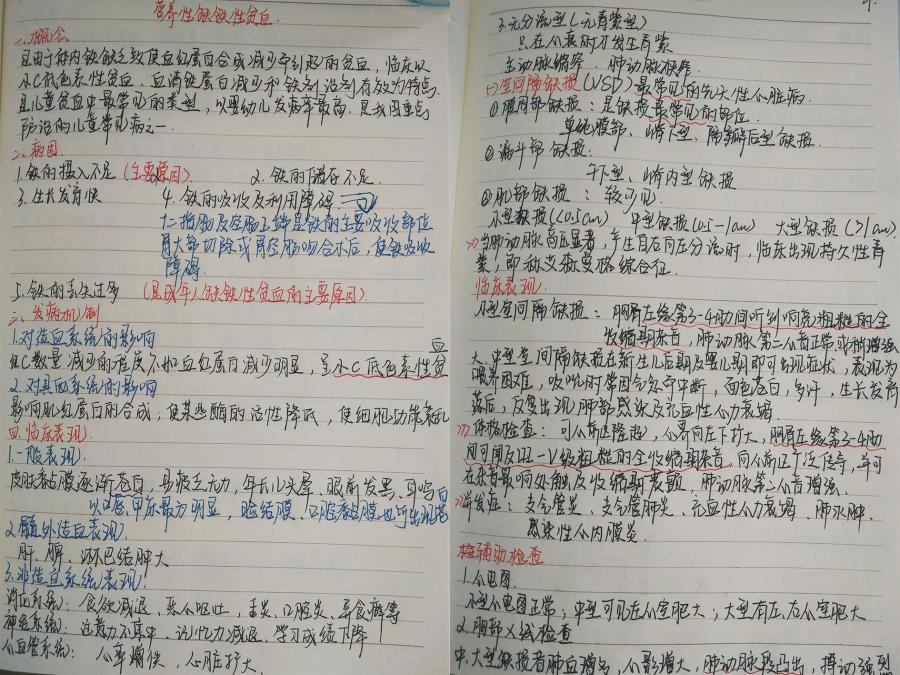 营养性缺铁性贫血
一、概念
是由于体内铁缺乏致使血红蛋白合成减少而引起的贫血,临床以
小C低色素性贫血、血清铁蛋白减少和铁剂治疗有效为特点.
是儿童贫血中最常见的类型,以婴幼儿发病率最高,是我国重点
防治的儿童常见病之一.
二、病因
1.铁的摄入不足(主要原因) 2.铁的储存不足.
3.生长发育快 4.铁的吸收及利用障碍.
十二指肠及空肠上端是铁的主要吸收部位
胃大部切除或胃空肠吻合术后,使铁吸收
障碍.
5.铁的丢失过多 (是成年人缺铁性贫血的主要原因)
三、发病机制
1.对造血系统的影响
红C数量减少的程度不如血红蛋白减少明显,呈小C低色素性贫血
2.对其他系统的影响
影响肌红蛋白的合成,使某些酶的活性降低,使细胞功能紊乱
四、临床表现.
1.一般表现.
皮肤黏膜逐渐苍白,易疲乏无力,年长儿头晕、眼前发黑、耳鸣
以口唇、甲床最为明显,睑结膜、口腔黏膜也可出现苍白
2.髓外造血表现.
肝、脾、淋巴结肿大
3.非造血系统表现:
消化系统:食欲减退、恶心呕吐,舌炎、口腔炎、异食癖等
神经系统:注意力不集中,记忆力减退,学习成绩下降
心血管系统: 心率增快,心脏扩大.
3.无分流型(无青紫型)
只在心衰时才发生青紫
主动脉缩窄、肺动脉狭窄.
(一)室间隔缺损(VSD)最常见的先天性心脏病.
①膜周部缺损:是缺损最常见的部位.
单纯膜部、嵴下型、隔瓣后型缺损.
②漏斗部缺损:
干下型、嵴内型缺损
③肌部缺损:较少见
小型缺损(<0.5cm) 中型缺损(0.5-1cm) 大型缺损(>1cm)
当肺动脉高压显著,产生自右向左分流时,临床出现持久性青
紫,即称艾森曼格综合征.
临床表现.
小型室间隔缺损:胸骨左缘第3-4肋间听到响亮粗糙的全
收缩期杂音,肺动脉第二心音正常或稍增强
大、中型室间隔缺损在新生儿后期及婴儿期即可出现症状,表现为
喂养困难,吸吮时常因气急而中断,面色苍白,多汗,生长发育
落后,反复出现肺部感染及充血性心力衰竭
体格检查:可心前区隆起,心界向左下扩大,胸骨左缘第3-4肋
间可闻及III-V级粗糙的全收缩期杂音,向心前区广泛传导,并可
在杂音最响处触及收缩期震颤,肺动脉第二心音增强.
并发症:支气管炎、支气管肺炎、充血性心力衰竭、肺水肿、
感染性心内膜炎.
辅助检查
1.心电图.
小型心电图正常;中型可见左心室肥大;大型有左、右心室肥大
2.胸部X线检查
中、大型缺损者肺血增多,心影增大,肺动脉段凸出,搏动强烈